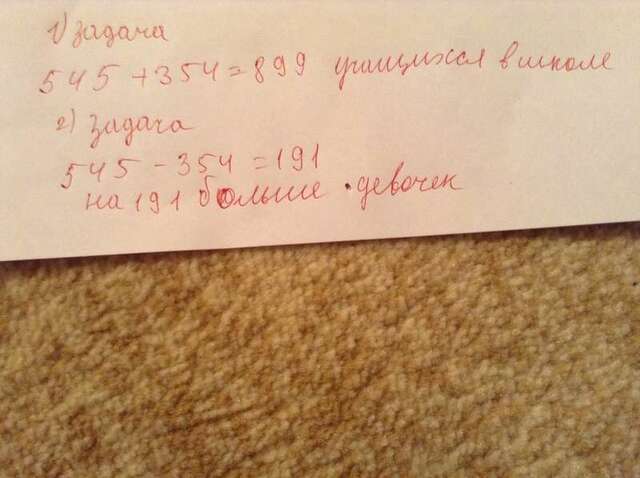 1) задача
545 + 354 = 899 учащихся в школе
2) задача
545 - 354 = 191
на 191 больше девочек